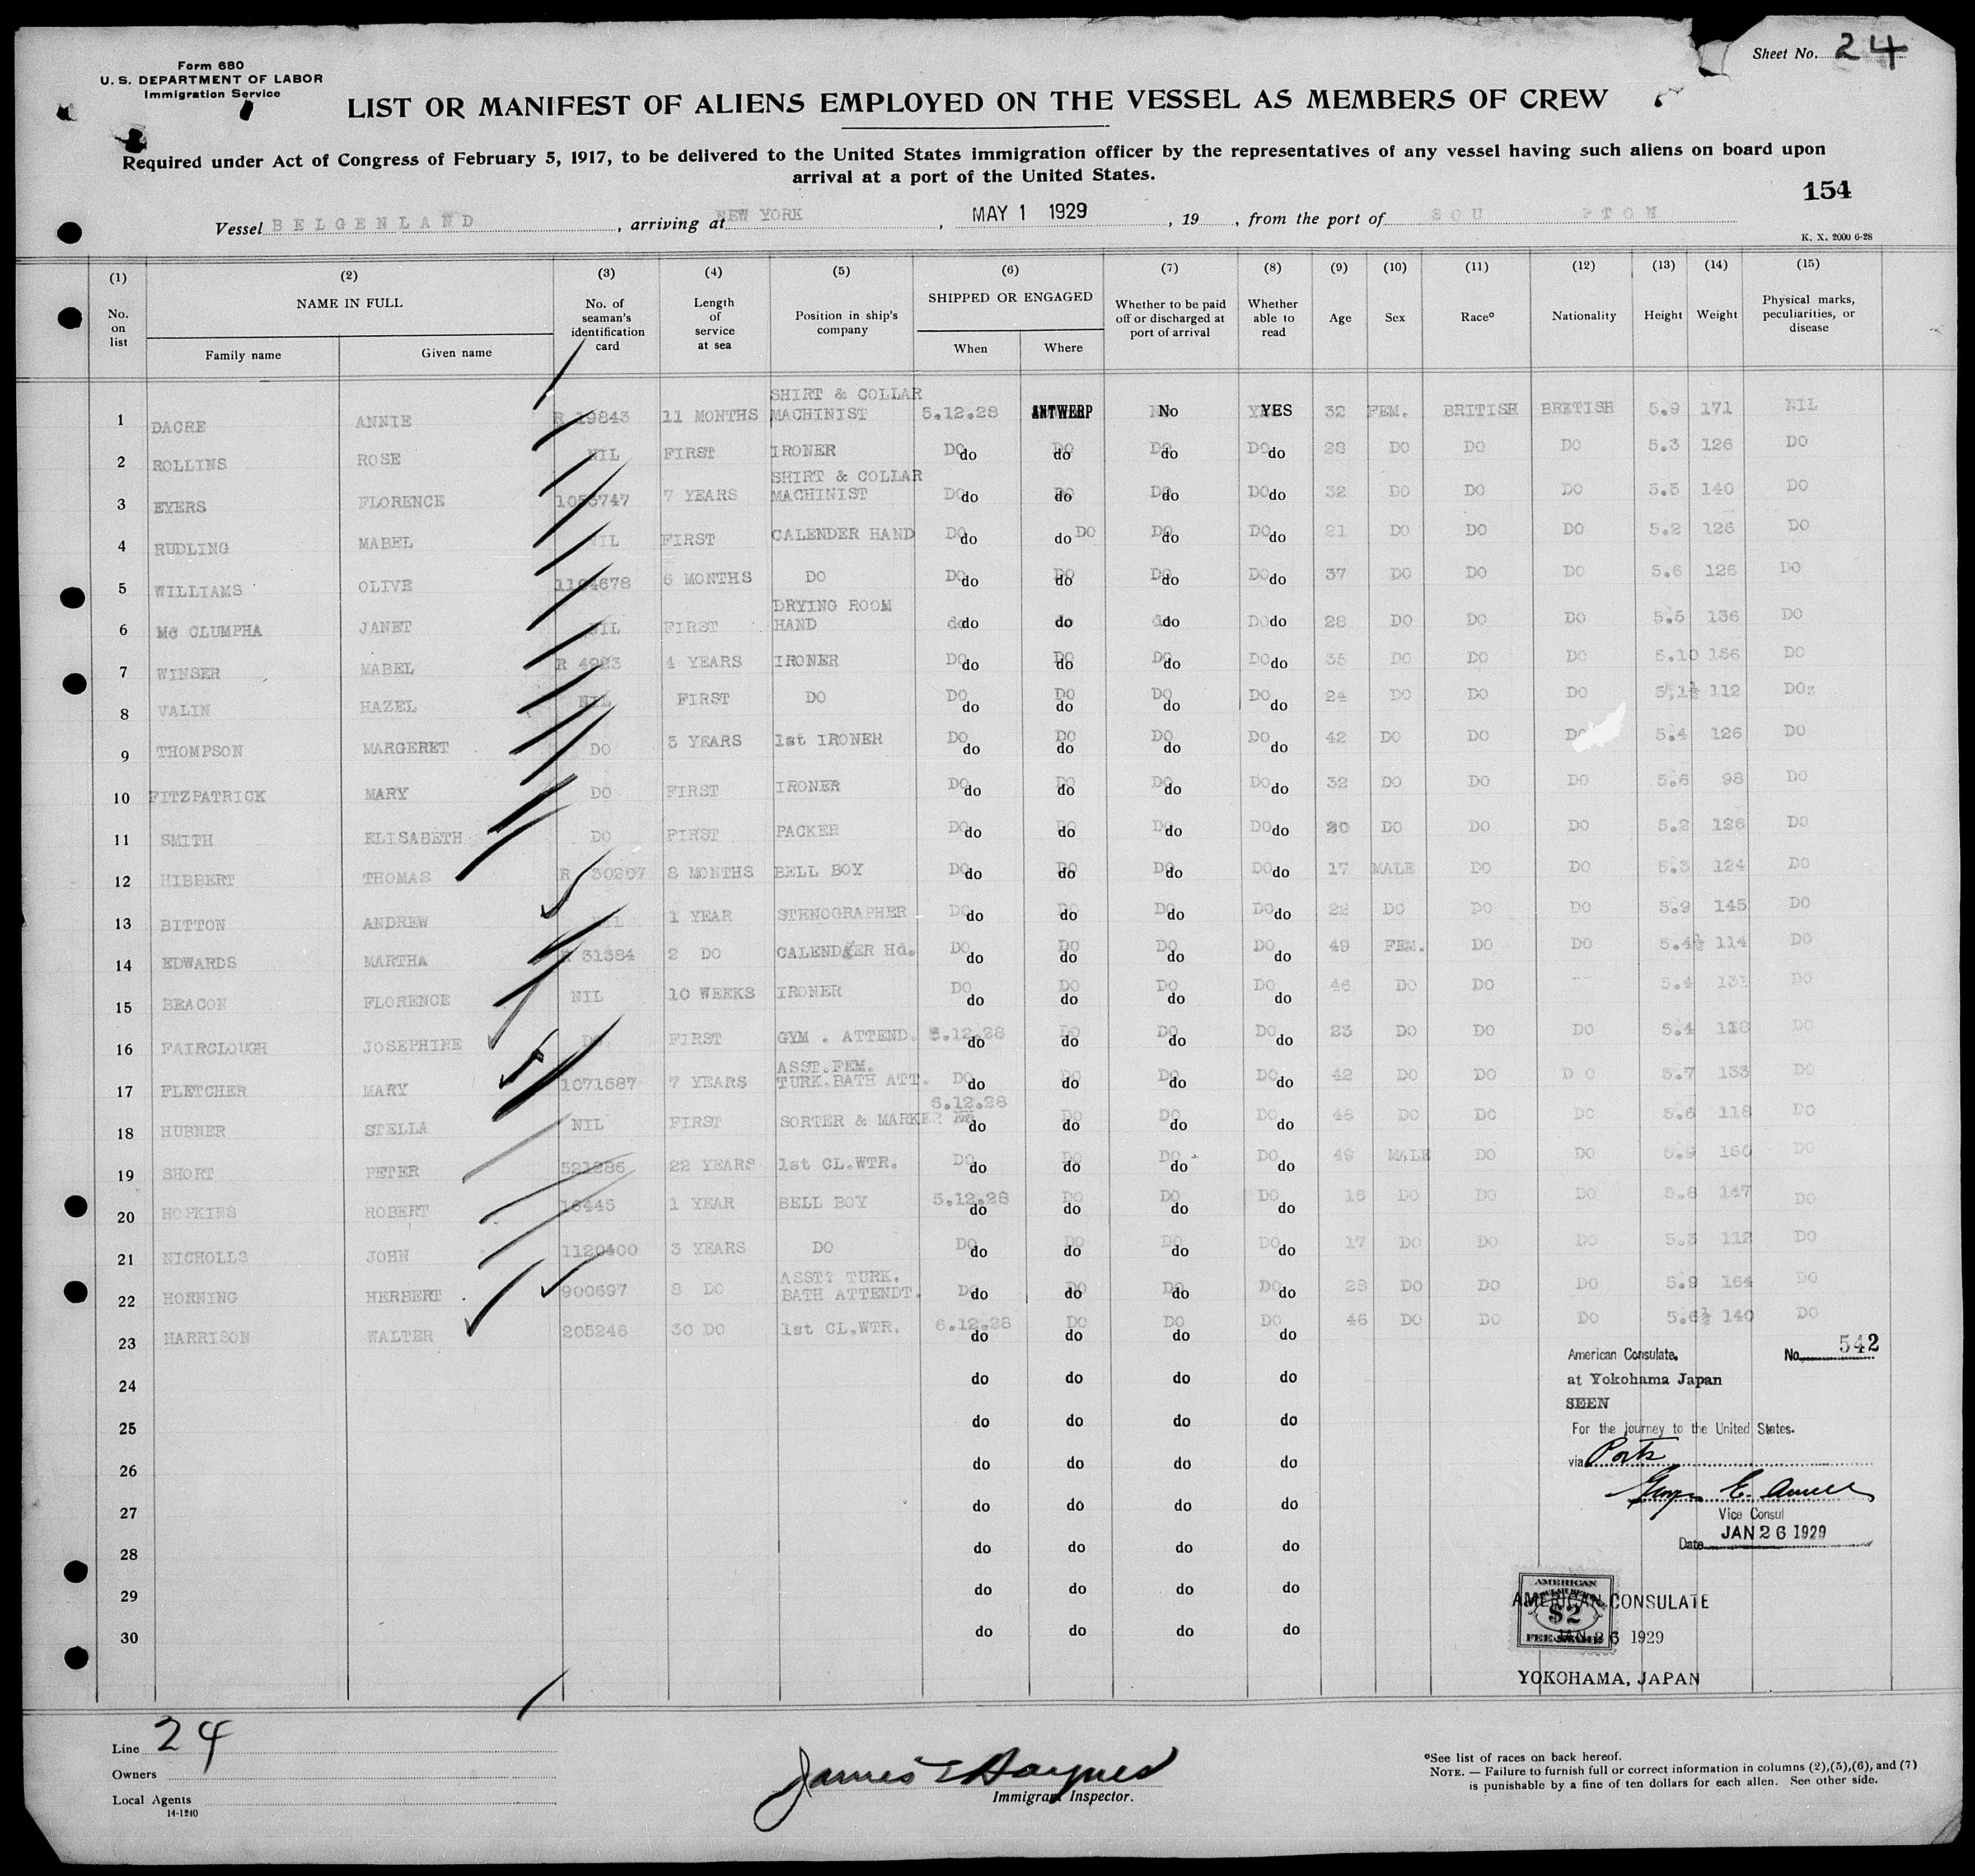 Form 680
U. S. DEPARTMENT OF LABOR
Immigration Service
Sheet No. 24
LIST OR MANIFEST OF ALIENS EMPLOYED ON THE VESSEL AS MEMBERS OF CREW
Required under Act of Congress of February 5, 1917, to be delivered to the United States immigration officer by the representatives of any vessel having such aliens on board upon
arrival at a port of the United States.
154
Vessel BELGENLAND, arriving at NEW YORK, MAY 1 1929, 19 , from the port of SOU PTON
K. X. 2000 6-28
(1) (2) (3) (4) (5) (6) (7) (8) (9) (10) (11) (12) (13) (14) (15)
No. on list NAME IN FULL Family name Given name No. of seaman's identification card Length of service at sea Position in ship's company SHIPPED OR ENGAGED When Where Whether to be paid off or discharged at port of arrival Whether able to read Age Sex Race° Nationality Height Weight Physical marks, peculiarities, or disease
1 DACRE ANNIE R 19843 11 MONTHS SHIRT & COLLAR MACHINIST 5.12.28 ANTWERP No YES 32 FEM. BRITISH BRITISH 5.9 171 NIL
2 ROLLINS ROSE NIL FIRST IRONER DO do DO do DO do DO do 28 DO DO DO 5.3 126 DO
3 EYERS FLORENCE 7 YEARS SHIRT & COLLAR MACHINIST DO do DO do DO do DO do 32 DO DO DO 5.5 140 DO
4 RUDLING MABEL NIL FIRST CALENDER HAND DO do do DO DO do DO do 21 DO DO DO 5.2 126 DO
5 WILLIAMS OLIVE 6 MONTHS DO DO do DO do DO do DO do 37 DO DO DO 5.6 126 DO
6 Mc CLUMPHA JANET NIL FIRST DRYING ROOM HAND do do do do DO do 28 DO DO DO 5.5 136 DO
7 WINSER MABEL 4 YEARS IRONER DO do DO do DO do DO do 35 DO DO DO 5.10 156 DO
8 VALIN HAZEL NIL FIRST DO DO do DO do DO do DO do 24 DO DO DO 5.1½ 112 DO
9 THOMPSON MARGERET DO 5 YEARS 1st IRONER DO do DO do DO do DO do 42 DO DO DO 5.4 126 DO
10 FITZPATRICK MARY DO FIRST IRONER DO do DO do DO do DO do 32 DO DO DO 5.6 98 DO
11 SMITH ELISABETH DO FIRST PACKER DO do DO do DO do DO do DO DO DO 5.2 126 DO
12 HIBBERT THOMAS 8 MONTHS BELL BOY DO do DO do DO do DO do 17 MALE DO DO 5.3 124 DO
13 BITTON ANDREW NIL 1 YEAR STENOGRAPHER DO do DO do DO do DO do 22 DO DO DO 5.9 145 DO
14 EDWARDS MARTHA R 31384 2 DO CALENDER Hd. DO do DO do DO do DO do 49 FEM. DO DO 5.4½ 114 DO
15 BEACON FLORENCE NIL 10 WEEKS IRONER DO do DO do DO do DO do 46 DO DO 5.4 131 DO
16 FAIRCLOUGH JOSEPHINE DO FIRST GYM . ATTEND. 5.12.28 do DO do DO do DO do 23 DO DO DO 5.4 118 DO
17 FLETCHER MARY 1071587 7 YEARS ASST.FEM. TURK.BATH ATT. DO do DO do DO do DO do 42 DO DO D O 5.7 133 DO
18 HUBNER STELLA NIL FIRST SORTER & MARKER 6.12.28 do DO do DO do DO do 46 DO DO DO 5.6 118 DO
19 SHORT PETER 521286 22 YEARS 1st CL.WTR. DO do DO do DO do DO do 49 MALE DO DO 5.9 160 DO
20 HOPKINS ROBERT 1 YEAR BELL BOY 5.12.28 do DO do DO do DO do 16 DO DO DO 5.8 147 DO
21 NICHOLLS JOHN 1120400 3 YEARS DO DO do DO do DO do DO do 17 DO DO DO 5.3 112 DO
22 HORNING HERBERT 900697 8 DO ASST? TURK. BATH ATTENDT. DO do DO do DO do DO do 28 DO DO DO 5.9 164 DO
23 HARRISON WALTER 205246 30 DO 1st CL.WTR. 6.12.28 do DO do DO do DO do 46 DO DO DO 5.6½ 140 DO
24 do do do do
25 do do do do
26 do do do do
27 do do do do
28 do do do do
29 do do do do
30 do do do do
American Consulate. No. 542
at Yokohama Japan
SEEN
For the journey to the United States.
via Ports
George E.
Vice Consul
Date JAN 26 1929
AMERICAN
$2
FEE STAMP
AMERICAN CONSULATE
JAN 26 1929
YOKOHAMA, JAPAN
Line 24
Owners
Local Agents
14-1240
James E Haynes
Immigrant Inspector.
°See list of races on back hereof.
NOTE. — Failure to furnish full or correct information in columns (2),(5),(6), and (7)
is punishable by a fine of ten dollars for each alien. See other side.